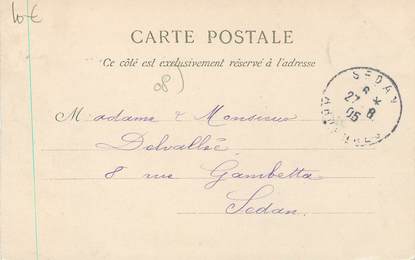 10€
CARTE POSTALE
Ce côté est exclusivement réservé à l'adresse
08)
SEDAN
6 *
27 - 8
05
ARDENNES
Madame & Monsieur
Delvallée
8 rue Gambetta
Sedan.